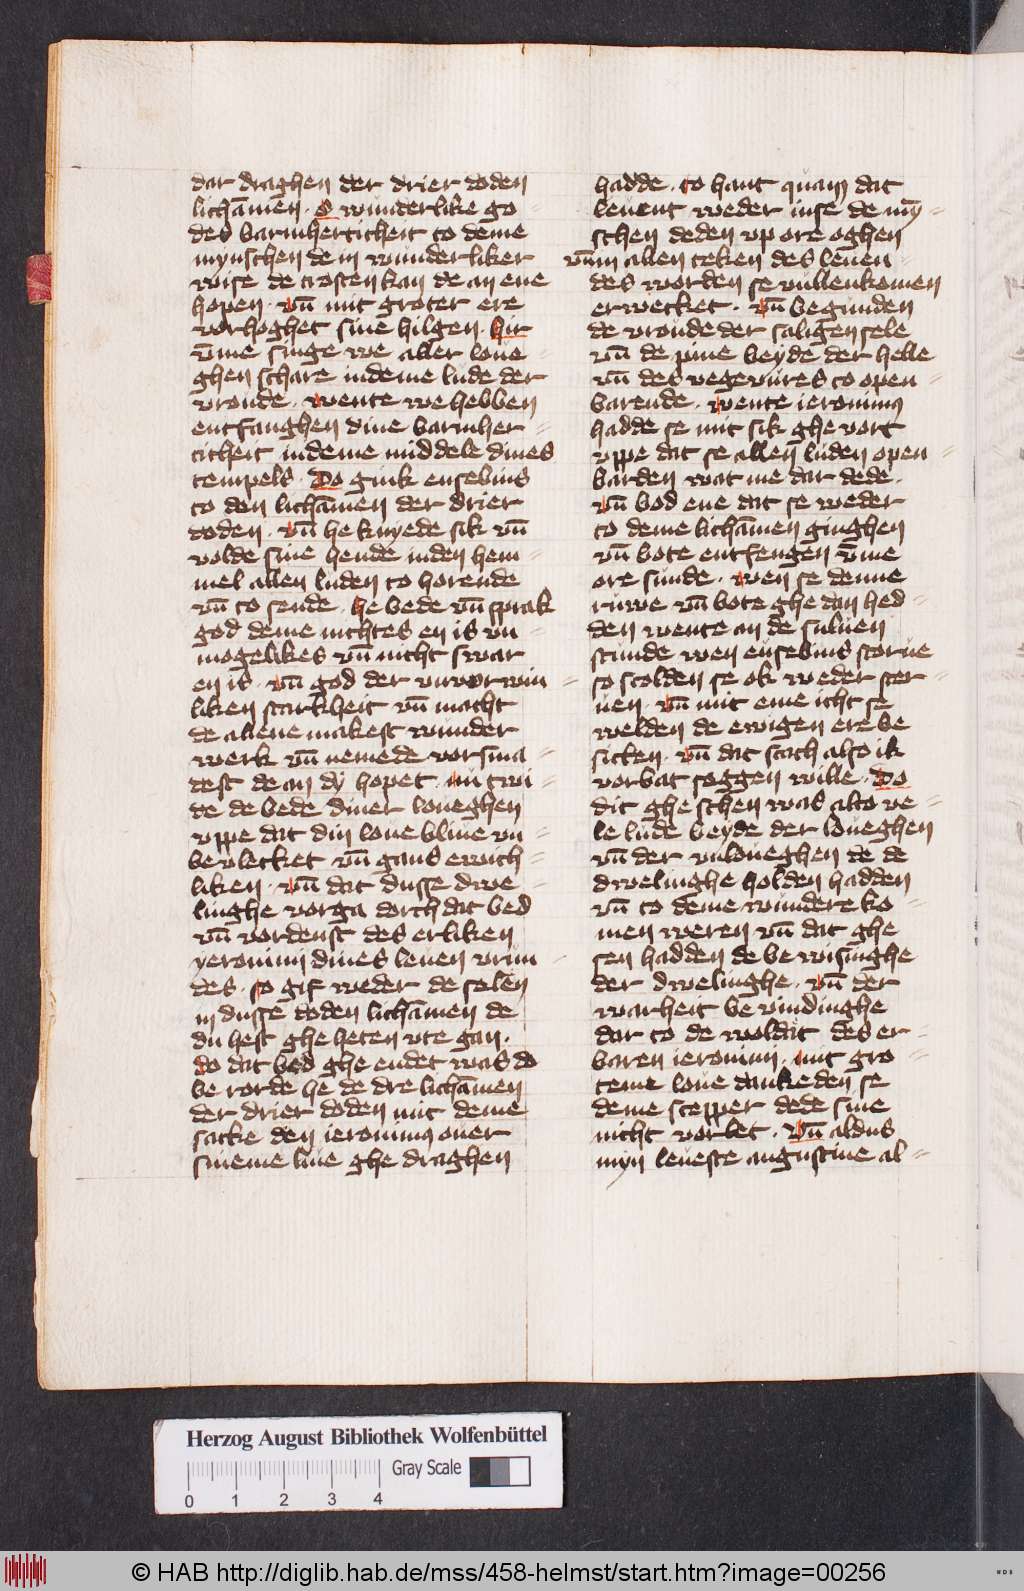 dar draghen der drier doden
lichāmen · O wunderlike go
des barmherticheit to deme
mynschen de in wunderliker
wise de trosten kan de an ene
hopen · vn̄ mit groter ere
vorhoghet sine hilgen · hir
vm̄e singe we aller loue
ghen schare indeme lude der
vroude · wente we hebben
entfanghen dine barmher
ticheit indeme middele dines
tempels · Do gink eusebius
to den lichāmen der drier
doden · vn̄ he knyede sik vn̄
volde sine hende inden hem
mel allen luden to horende
vn̄ to sende · he bede vn̄ sprak
god deme nichtes en is vn
mogelikes vn̄ nicht swar
en is · vn̄ god der vnvorwin
liken starkheit vn̄ macht
de allene makest wunder
werk vn̄ nemede vorsma
dest de an dy hopet · nu twi
de de bede diner loueghen
vppe dat din loue bliue vn
bevlecket vn̄ gans ewich
liken · vn̄ dat dusse dwe
linghe vorga dorch dat bed
vn̄ vordenst des erliken
yeronimi dines leuen vrun
des · so gif weder de selen
in dusse doden lichāmen de
du hest gheheten vte gan ·
do dat bed ghe endet was do
be rorde he de dre lichāmen
der drier doden mit deme
sacke den ieronimus ouer
sineme liue ghe draghen
hadde · to hant quam dat
leuent weder inse de my̅
schen deden vp ore oghen
vn̄ in allen teken des leuen
des worden se vullenkomen
erwecket · vn̄ begunden
de vroude der saligen sele
vn̄ de pine beyde der helle
vn̄ des vegevures to open
barende · wente ieronimus
hadde se mit sik ghe vort
vppe dat se allen luden open
barden wat me dar dede ·
vn̄ bod ene dat se weder
to deme lichāmen ginghen
vn̄ bote entfengen vm̄e
ore sunde · wen se denne
ruwe vn̄ bote ghe dan hed
den wente an de suluen
stunde wen eusebius storue
so scolden se ok weder ster
uen · vn̄ mit eme icht se
welden de ewigen ere be
sitten · vn̄ dat scach also ik
vorbat seggen wille · Do
dit ghe schen was alto ve
le lude beyde der loueghen
vn̄ der vnloueghen de de
dwelinghe holden hadden
vn̄ to deme wundere ko
men weren vn̄ dat ghe
sen hadden de bewisinghe
der dwelinghe · vn̄ der
warheit be vindinghe
dar to de woldat des er
baren ieronimi · mit gro
teme loue dankeden se
deme scepper dede sine
nicht vorlet · Vn̄ aldus
myn leueste augustine al
Herzog August Bibliothek Wolfenbüttel
Gray Scale
0 1 2 3 4
© HAB http://diglib.hab.de/mss/458-helmst/start.htm?image=00256